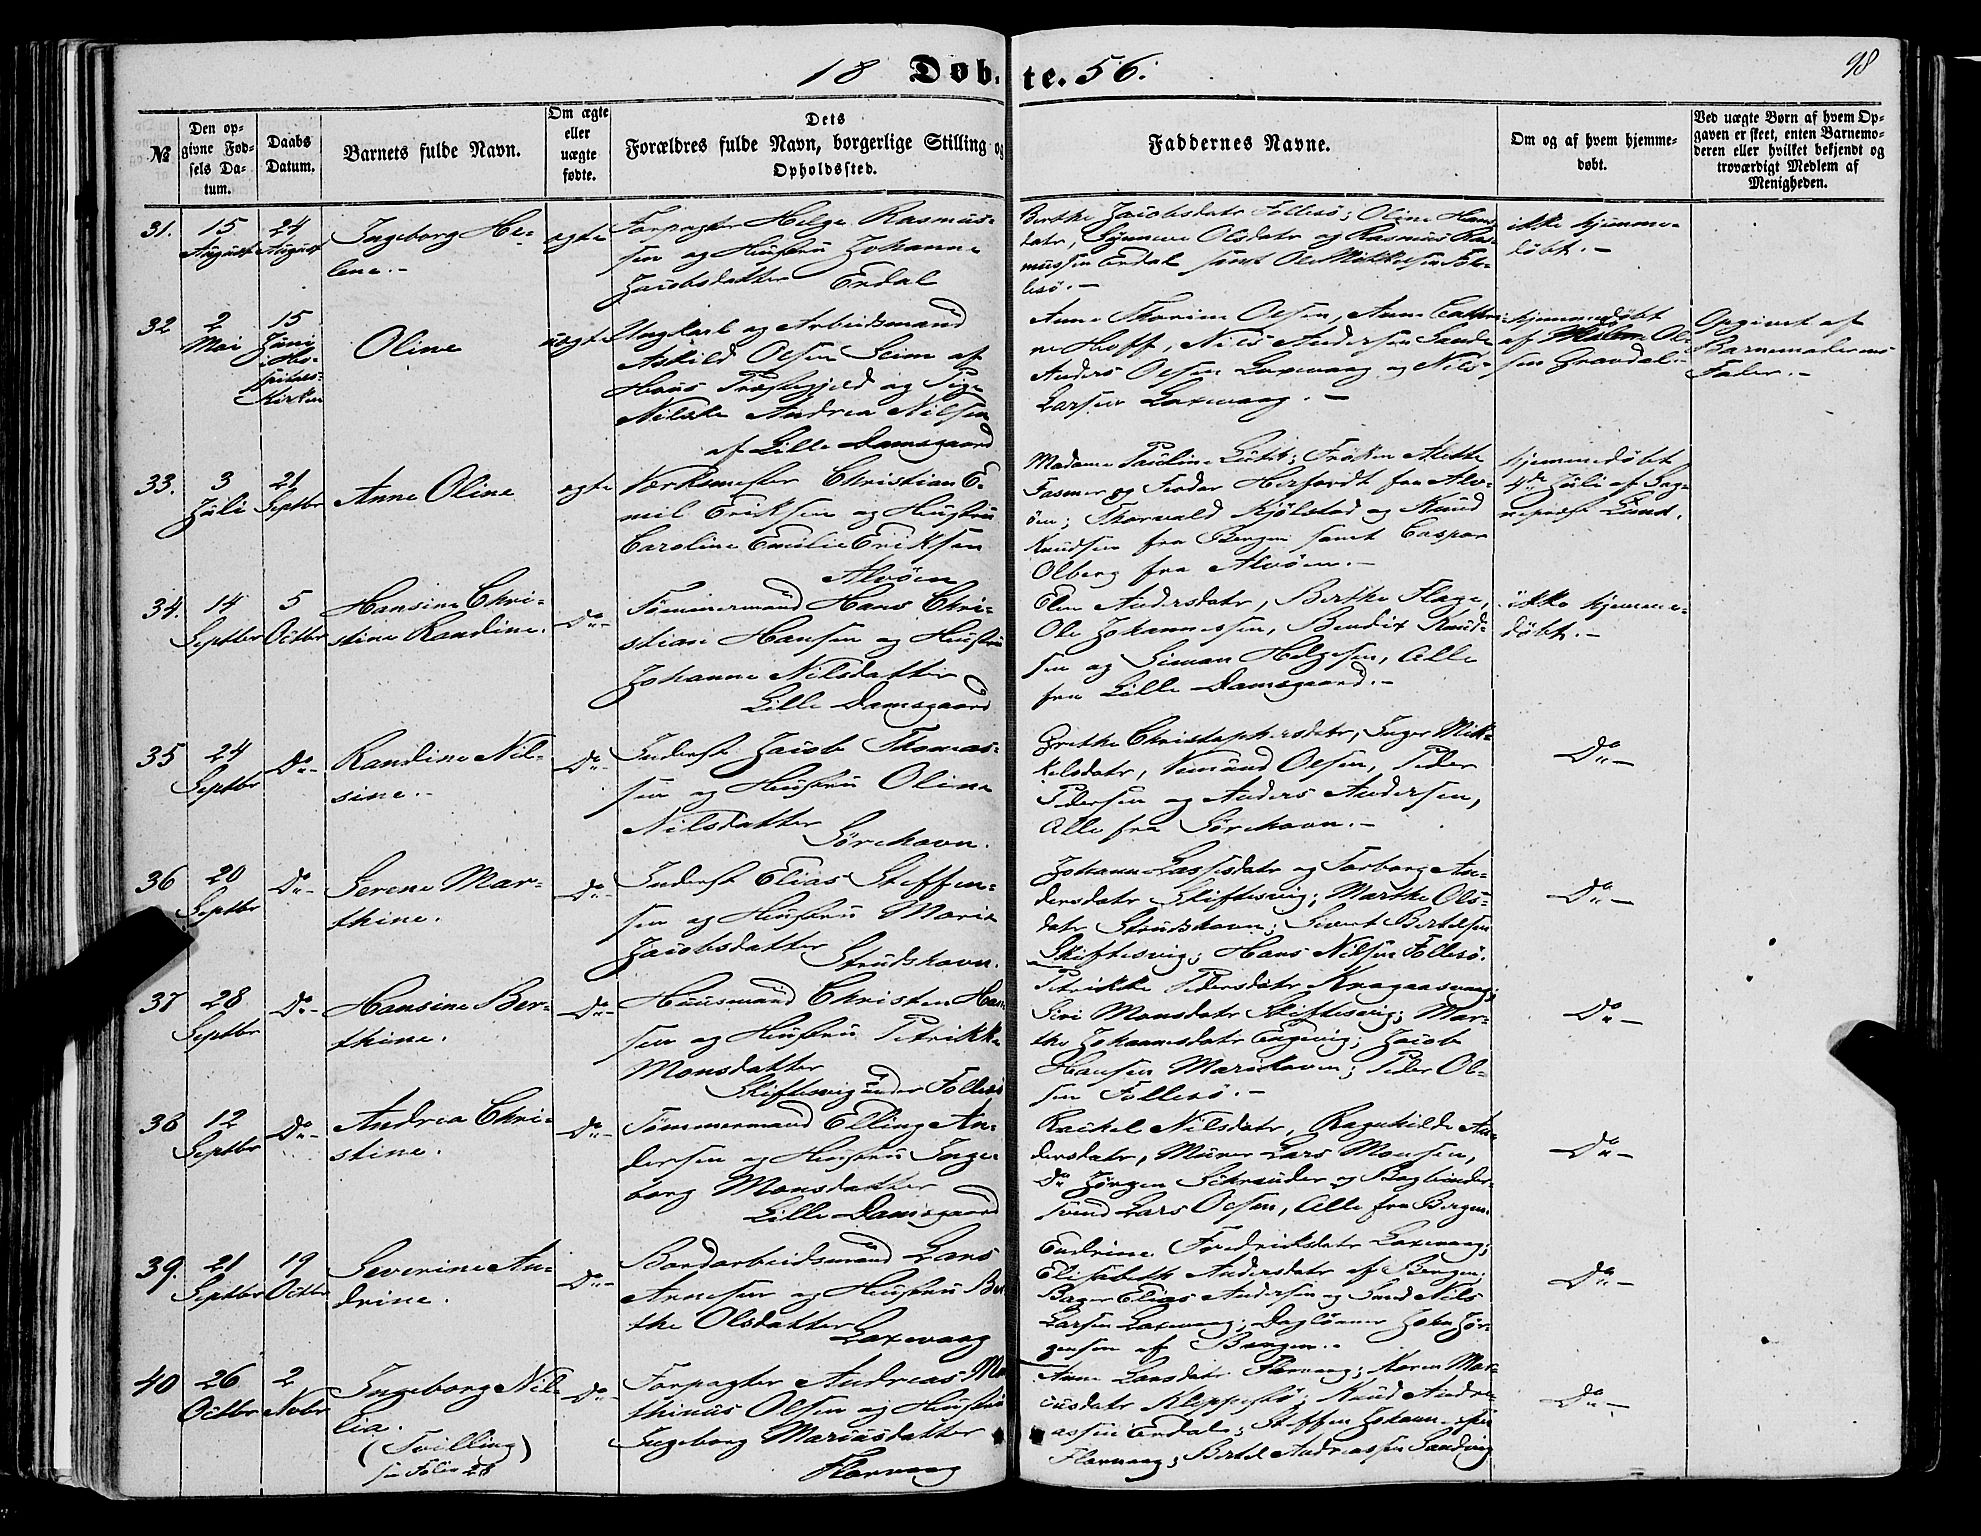 18 Døbte. 56.
98
№
Den opgivne Fødsels Datum.
Daabs Datum.
Barnets fulde Navn.
Om ægte eller uægte fødte.
Dets Forældres fulde Navn, borgerlige Stilling og Opholdssted.
Faddernes Navne.
Om og af hvem hjemmedøbt.
Ved uægte Børn af hvem Opgaven er skeet, enten Barnemoderen eller hvilket bekjendt og troværdigt Medlem af Menigheden.
31.
15 August
24 August
Ingeborg He-
lene.-
ægte
Forpagter Helge Rasmus-
sen og Hustru Johanne
Jacobsdatter Erdal
Berthe Jacobsdatr Follesö; Oline Hans
datr, Synneve Olsdatr og Rasmus Ras-
mussen Erdal samt Ole Mikkelsen Fol-
lesö.-
ikke hjemme-
döbt.-
32
2 Mai
15
Juni
i Ho-
spitals-
Kirken
Oline
uægte
Ungkarl og Arbeidsmand
Askild Olsen Seim af
Hous Præstegjeld og Pige
Nilske Andrea Nilsen
af Lille Damsgaard
Anne Olsen, Anne Cathri-
ne Hoff, Nils Andersen Sande
Anders Olsen Laxevaag og Nils
Larsen Laxevaag.-
hjemmedöbt
af Ol-
sen Gravdal.-
Opgivet af
Barnemoderens
Fader.-
33.
3 Juli
21 Septbr
Anne Oline
ægte
Værksmester Christian E-
mil Eriksen og Hustru
Caroline Emilie Eriksen
Alvöen
Madame Pauline; Fröken Alette
Fasmer og Herfordt fra Alv-
öen; Thorvald Kjölstad og Knud
Knudsen fra Bergen samt Caspar
Olberg fra Alvöen.-
hjemmedöbt
4de Juli af Sog-
nepræst Lund.
34.
14 Septbr
5 Octbr
Hansine Chri-
stine Randine.
Do-
Tömmermand Hans Chri-
stian Hansen og Hustru
Johanne Nilsdatter
Lille Damsgaard
Elen Andersdatr, Berthe Flage,
Ole Johannessen, Bendix Knud-
sen og Simon Helgesen, Alle
fra Lille Damsgaard.-
ikke hjemme-
döbt.-
35
24 Septbr
Do-
Randine Nil-
sine.-
Do-
Inderst Jacob Thomas-
sen og Hustru Oline
Nilsdatter
Sörehavn.
Grethe Christophersdatr, Inger Mik-
kelsdatr, Vemund Olsen, Peder
Pedersen og Anders Andersen,
Alle fra Sörehavn.-
Do-
36
20 Septbr
Do-
Serene Mar-
thine.
Do-
Inderst Elias Steffen-
sen og Hustru Marie
Jacobsdatter
Strudshavn.
Johanne Lassesdatr og Torborg An-
dersdatr Skiftesvig; Marthe Ols-
datr Strudshavn; Sivert Bertelsen
Skiftesvig; Hans Nilsen Follesö.
Do-
37
28 Septbr
Do-
Hansine Ber-
thine.
Do-
Huusmand Christen Han-
sen og Hustru Petrikke
Monsdatter
Skiftesvig under Follesö
Petrikke Pedersdatr Kragaasvaag;
Siri Monsdatr Skiftesvig; Mar-
the Johannesdatr Engevig; Jacob
Hansen Marikoven; Peder Ol-
sen Follesö.-
Do-
38
12 Septbr
Do-
Andrea Chri-
stine.
Do-
Tömmermand Elling An-
dersen og Hustru Inge-
borg Monsdatter
Lille Damsgaard
Rachel Nilsdatr, Ragnhilde An-
dersdatr, Murer Lars Monsen,
Do Jörgen Schreuder og Bogbinder-
svend Lars Olsen, Alle fra Bergen.
Do-
39.
21 Septbr
19 Octbr
Severine An-
drine.
Do-
Bordarbeidsmand Lars
Arnesen og Hustru Ber
the Olsdatter
Laxevaag
Endrine Fredriksdatr Laxevaag;
Elisabeth Andersdatr af Bergen;
Bager Elias Andersen og Smed Nils
Larsen Laxevaag; Daglönner John Jör-
gensen af Bergen.-
Do-
40
26 Octbr
2 Novbr
Ingeborg Nil-
lia.
(Tvilling)
se Folio 28
Do-
Forpagter Andreas Ma
thinus Olsen og Hustru
Ingeborg Mariusdatter
Florvaag
Anne Larsdatr Florvaag; Karen Mar-
iusdatr Kleppestö; Knud Andre-
assen Erdal; Steffen Johannessen
Florvaag; Bertel Andreassen Sandvig
Do-